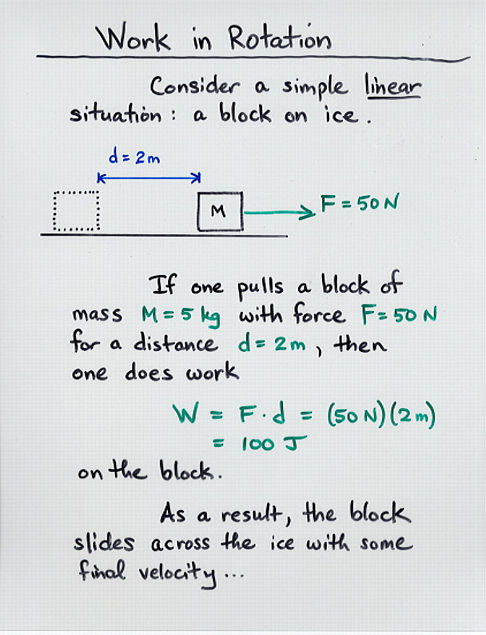 Work in Rotation
Consider a simple linear
situation : a block on ice .
d = 2 m
M
F = 50 N
If one pulls a block of
mass M = 5 kg with force F = 50 N
for a distance d = 2 m , then
one does work
W = F · d = (50 N)(2 m)
= 100 J
on the block.
As a result, the block
slides across the ice with some
final velocity ...